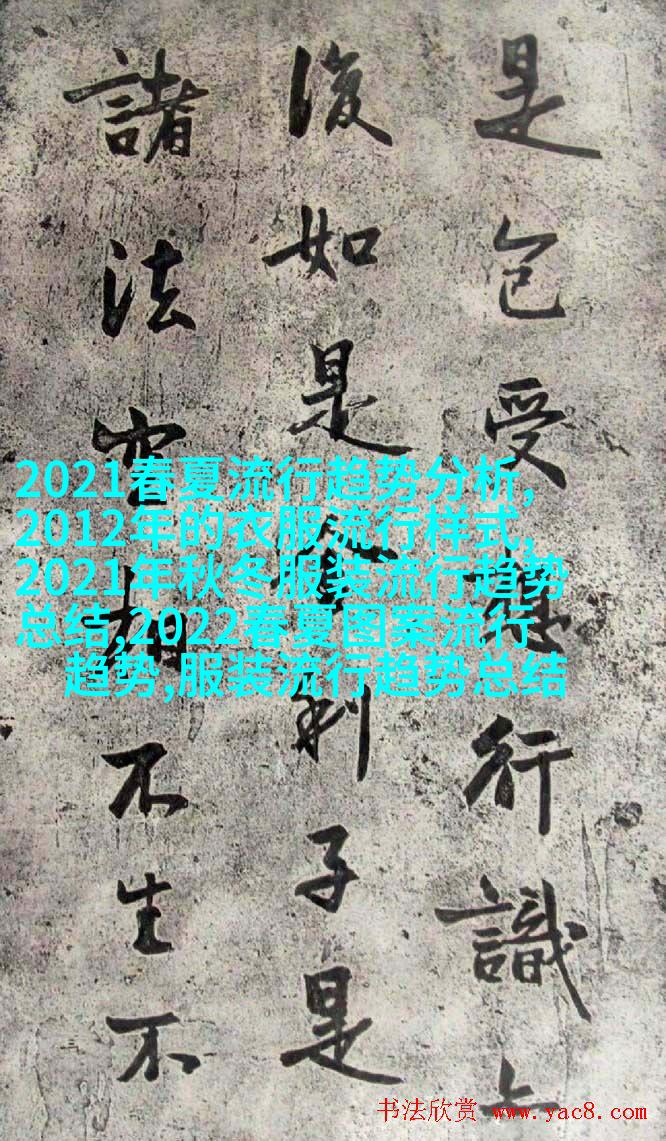 是色受想行識
復如是舍利子是
諸法空相不生不
2021春夏流行趋势分析,
2012年的衣服流行样式,
2021年秋冬服装流行趋势
总结,2022春夏图案流行
趋势,服装流行趋势总结
书法欣赏 www.yac8.com